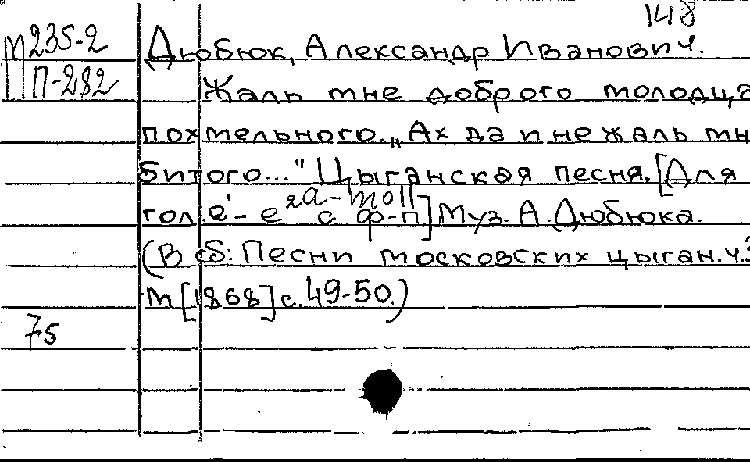 148
М 235-2
П-282
Дюбюк, Александр Иванович.
Жаль мне доброго молодца
похмельного. „Ах да и не жаль мн
битого..." Цыганская песня. [Для
гол. e'- e² a-moll с ф-п] Муз. А. Дюбюка.
(В сб: Песни московских цыган. ч.
М [1868] с. 49-50.)
75